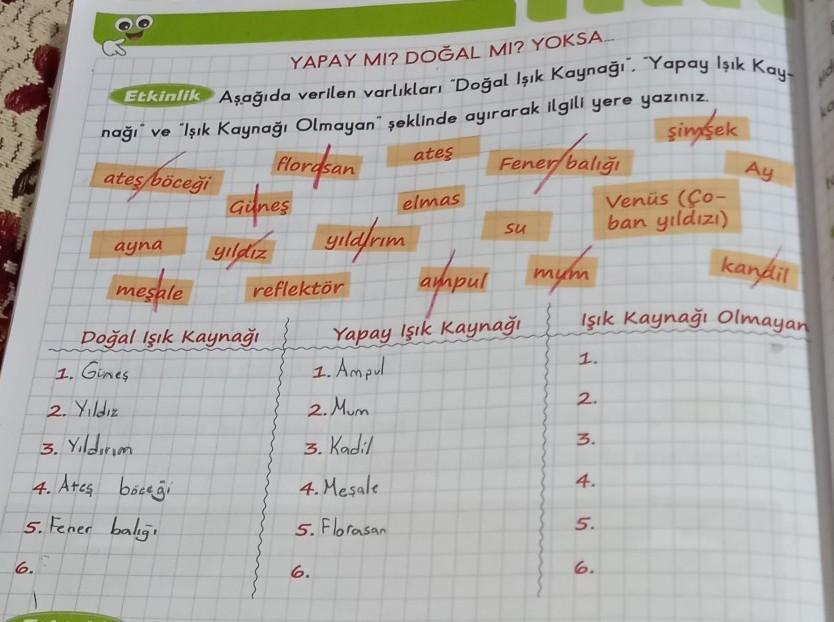 YAPAY MI? DOĞAL MI? YOKSA...
Etkinlik Aşağıda verilen varlıkları "Doğal Işık Kaynağı", "Yapay Işık Kay-
nağı" ve "Işık Kaynağı Olmayan" şeklinde ayırarak ilgili yere yazınız.
ateş böceği florasan ateş Fener balığı şimşek
Güneş elmas Venüs (Ço- Ay
ban yıldızı)
ayna yıldız yıldırım su
meşale reflektör ampul mum kandil
Doğal Işık Kaynağı Yapay Işık Kaynağı Işık Kaynağı Olmayan
1. Güneş 1. Ampul 1.
2. Yıldız 2. Mum 2.
3. Yıldırım 3. Kadil 3.
4. Ateş böceği 4. Meşale 4.
5. Fener balığı 5. Florasan 5.
6. 6. 6.